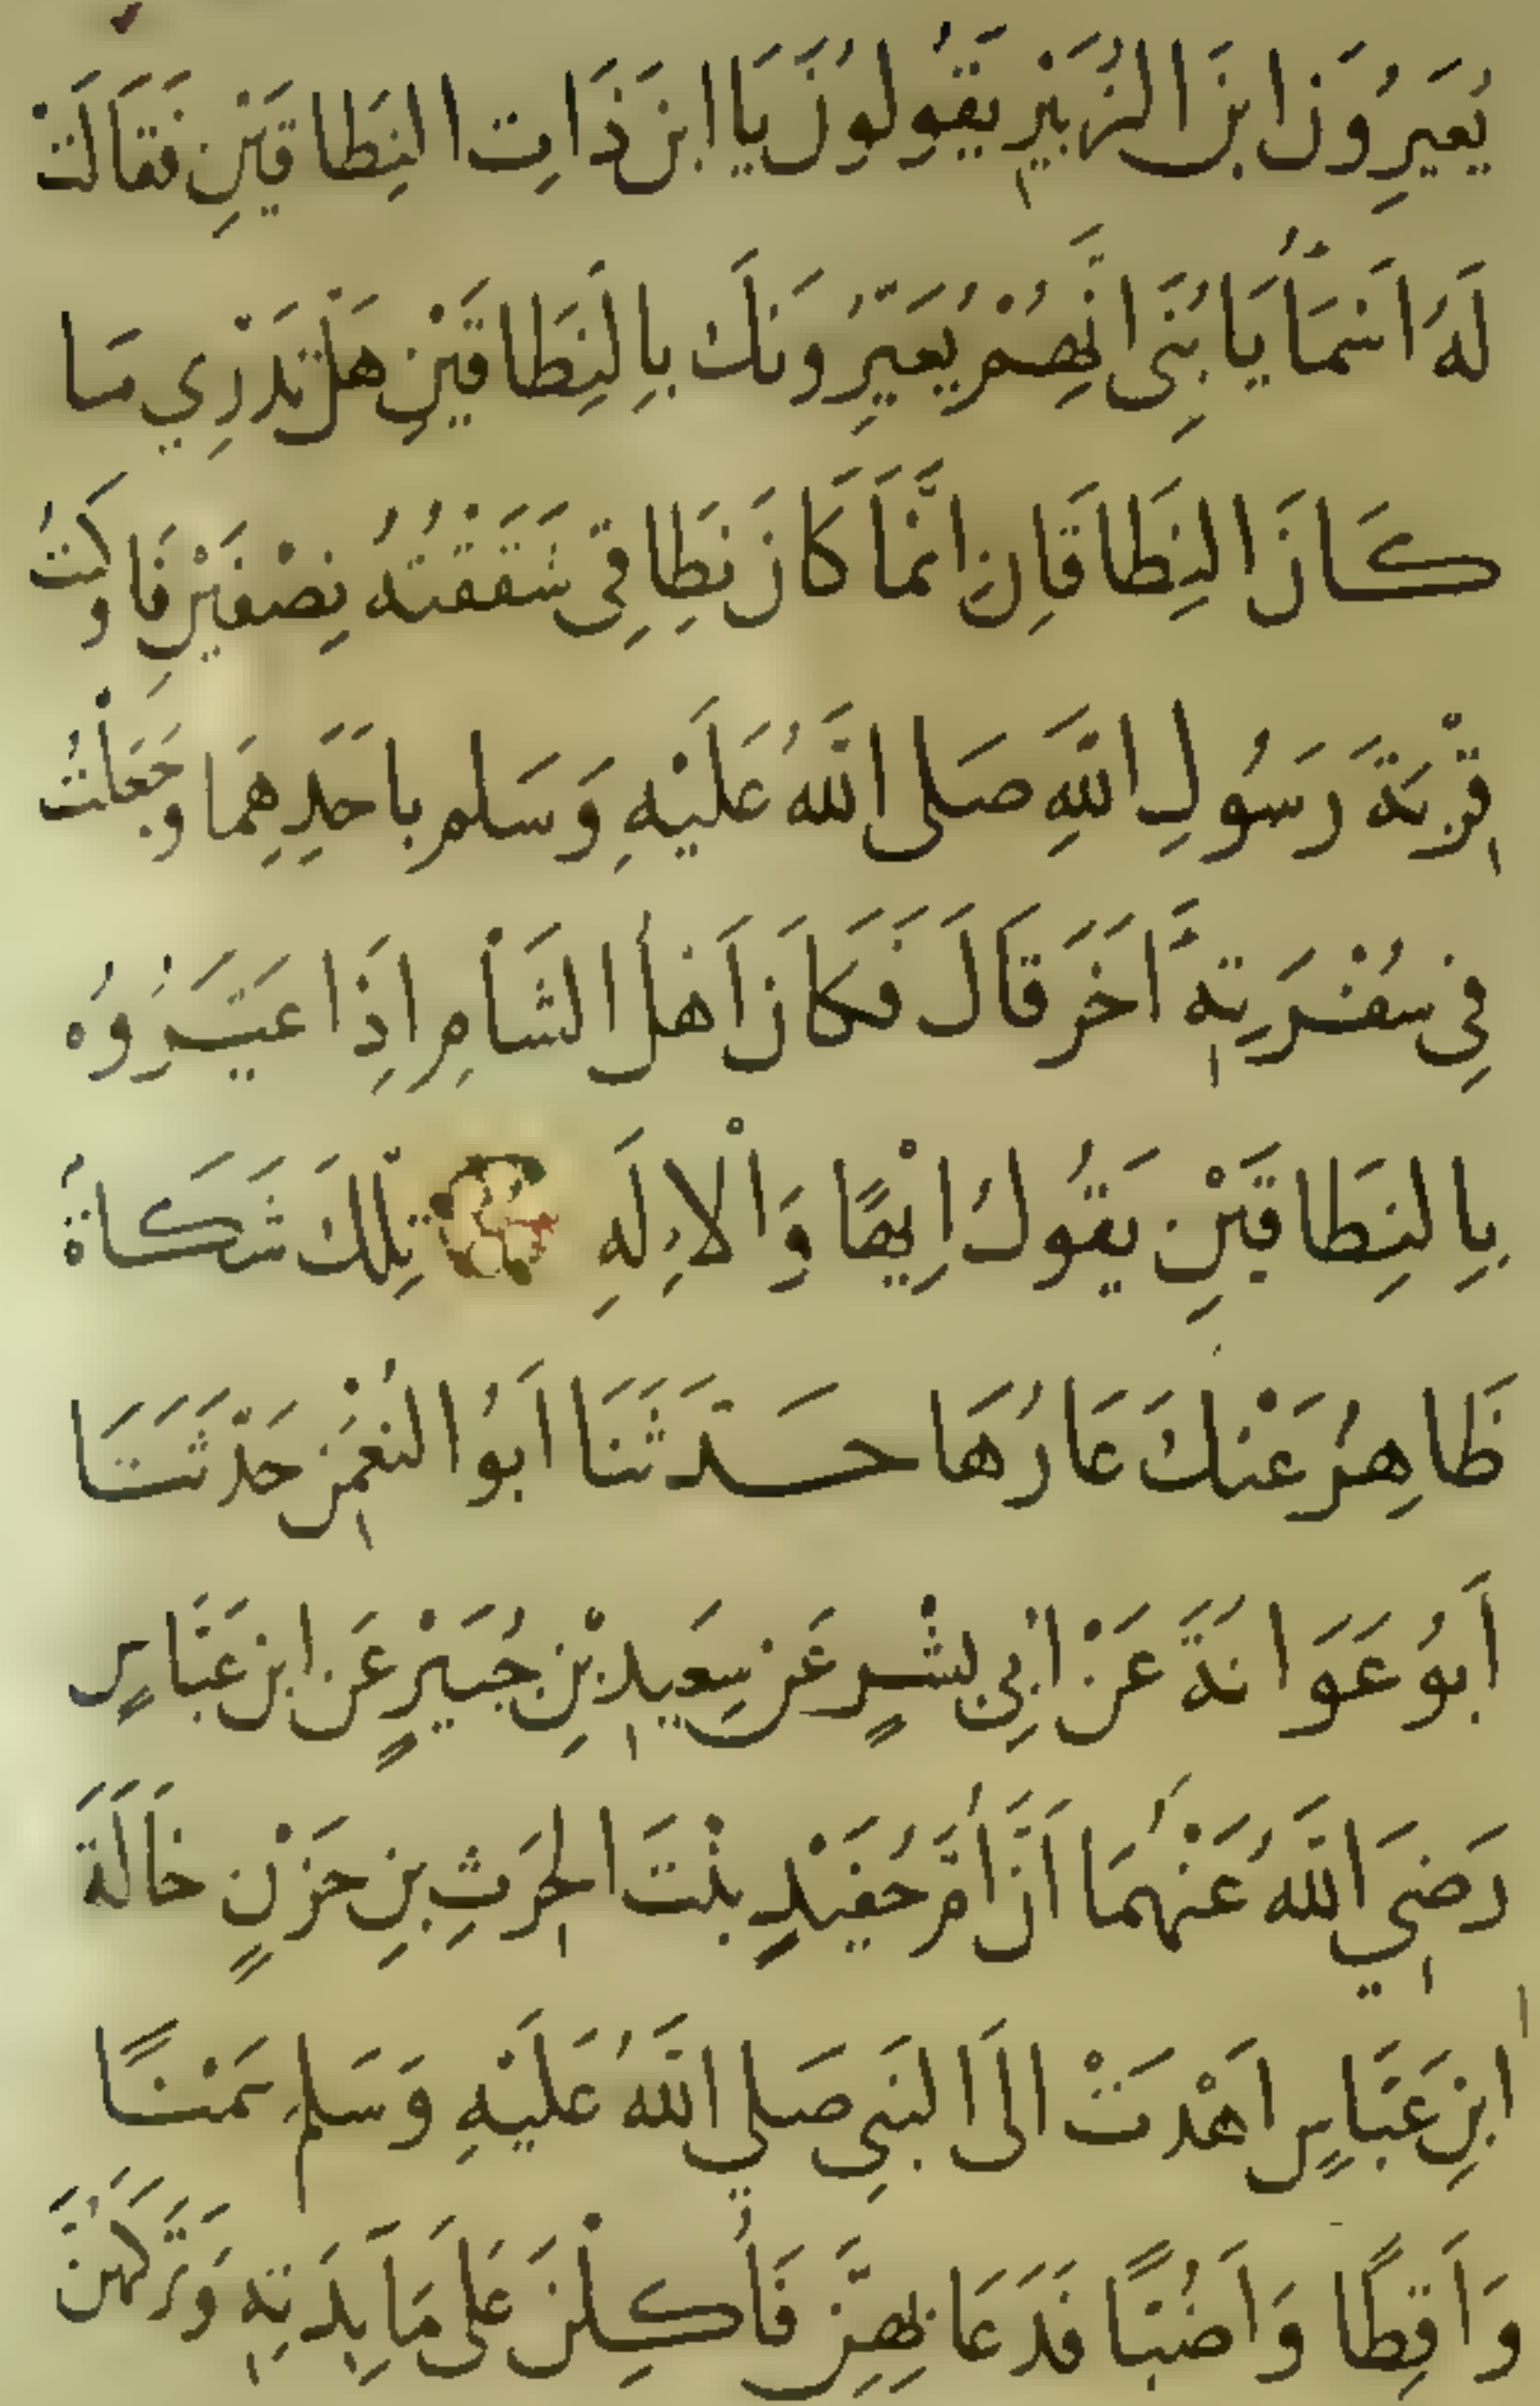 يُعَيِّرُونَ ابنَ الزُّبَيْرِ يَقُولُونَ يَا ابنَ ذَاتِ النِّطَاقَيْنِ فَقَالَتْ
لَهُ اَسْمَاُ يَا بُنَىِّ اِنَّهُمْ يُعَيِّرُونَكَ بِالنِّطَاقَيْنِ هَلْ تَدْرِي مَا
كَانَ النِّطَاقَانِ اِنَّمَا كَانَ نِطَاقِى شَقَقْتُهُ نِصْفَيْنِ فَاوكَيتُ
قِرْبَةَ رَسُولِ اللَّهِ صَلى اللَّهُ عَلَيْهِ وَسَلم باَحَدِهِمَا وجَعَلْتُ
فِي سُفْرَتِهِ اَخَرَ قَالَ فَكَانَ اَهْلُ الشَّاْمِ اِذَا عَيَّرُوهُ
بِالنِّطَاقَيْنِ يَقُولُ اِيْهًا وَاْلاِلَهِ تِلْكَ شَكَاةٌ
ظَاهِرُ عَنْكَ عَارُهَا حَدَّثَنَا اَبُوُ النُّعْمٰنِ حَدَّثَنَا
أَبُو عَوَانَةَ عَنْ اَبِي بِشْرٍ عَن سَعِيدِ بْنِ جُبَيْرٍ عَنِ ابنِ عَبَّاسٍ
رَضِيَ اللَّهُ عَنْهُمَا اَنَّ اُمَّ حُفَيْدٍ بِنْتَ الْحٰرِثِ بنِ حَزْنٍ خَالَةَ
ابنِ عَبَّاسٍ اَهْدَتْ الَى النَّبِي صَلي اللَّهُ عَلَيْهِ وَسَلم سَمْنًا
وَاَقِطًا وَاَضُبًّا فَدَعَا بِهِنَّ فَاُكِلْنَ عَلَى مَايِدَتِهِ وَتَرَكَهُنَّ